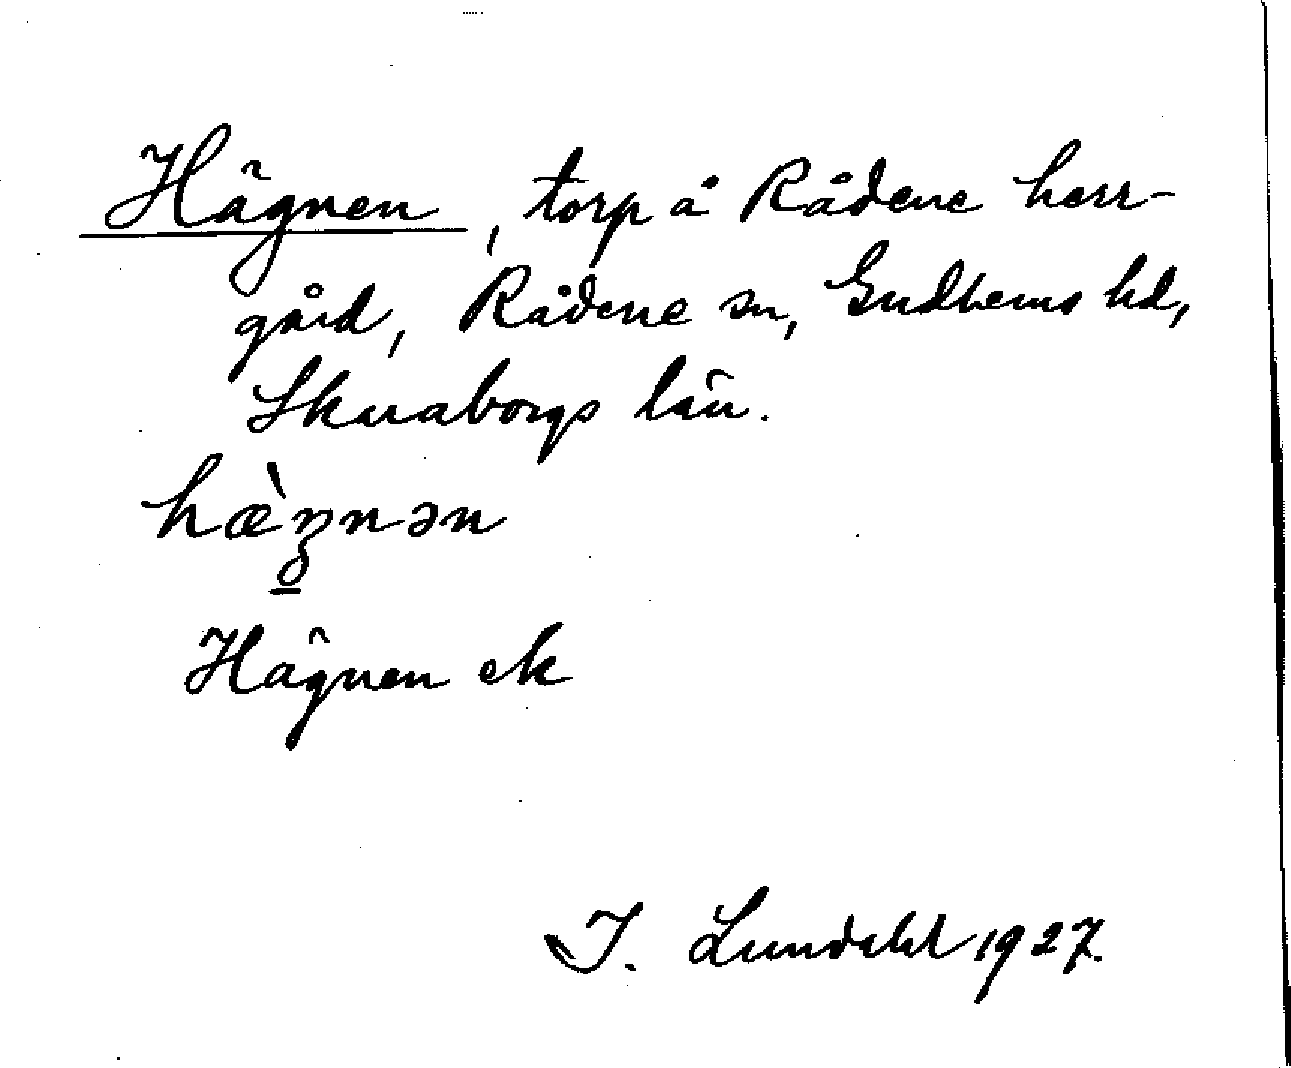 Hägnen, torp å Rådene herr-
gård, Rådene sn, Gudhems hd,
Skaraborgs län.
hæ̀ᶇnən
Hägnen ek
I. Lundahl 1927.